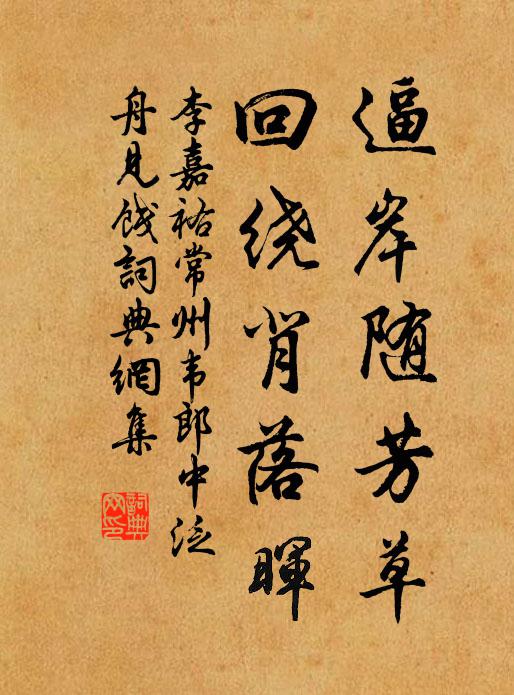 逼岸随芳草
回绕背落暉
李嘉祐常州韦郎中泛
舟見餞詞典網集
詞典
网印